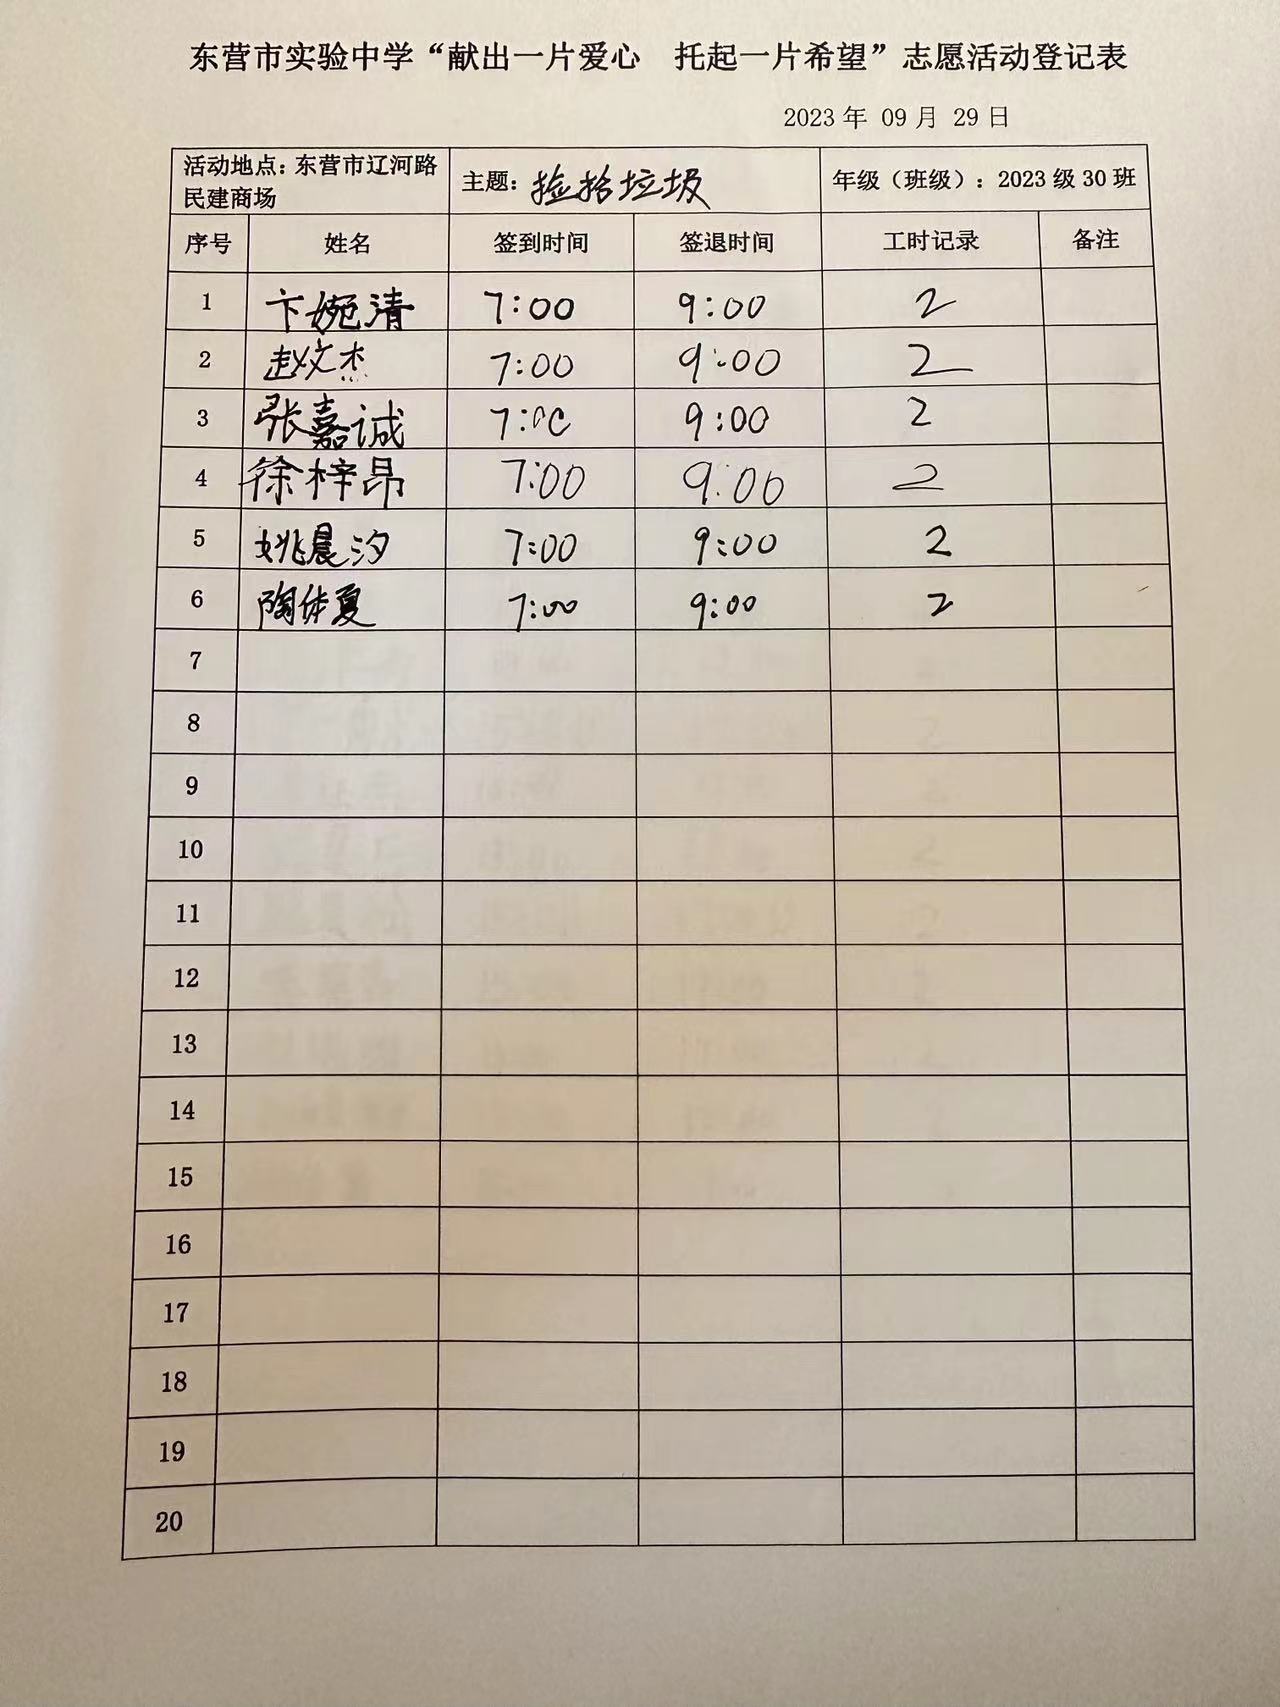 东营市实验中学“献出一片爱心 托起一片希望”志愿活动登记表
2023 年 09 月 29 日
活动地点：东营市辽河路民建商场 主题：捡拾垃圾 年级（班级）：2023 级 30 班
序号 姓名 签到时间 签退时间 工时记录 备注
1 卞婉清 7:00 9:00 2
2 赵文杰 7:00 9:00 2
3 张嘉诚 7:00 9:00 2
4 徐梓昂 7:00 9:00 2
5 姚晨汐 7:00 9:00 2
6 陶依夏 7:00 9:00 2
7
8
9
10
11
12
13
14
15
16
17
18
19
20